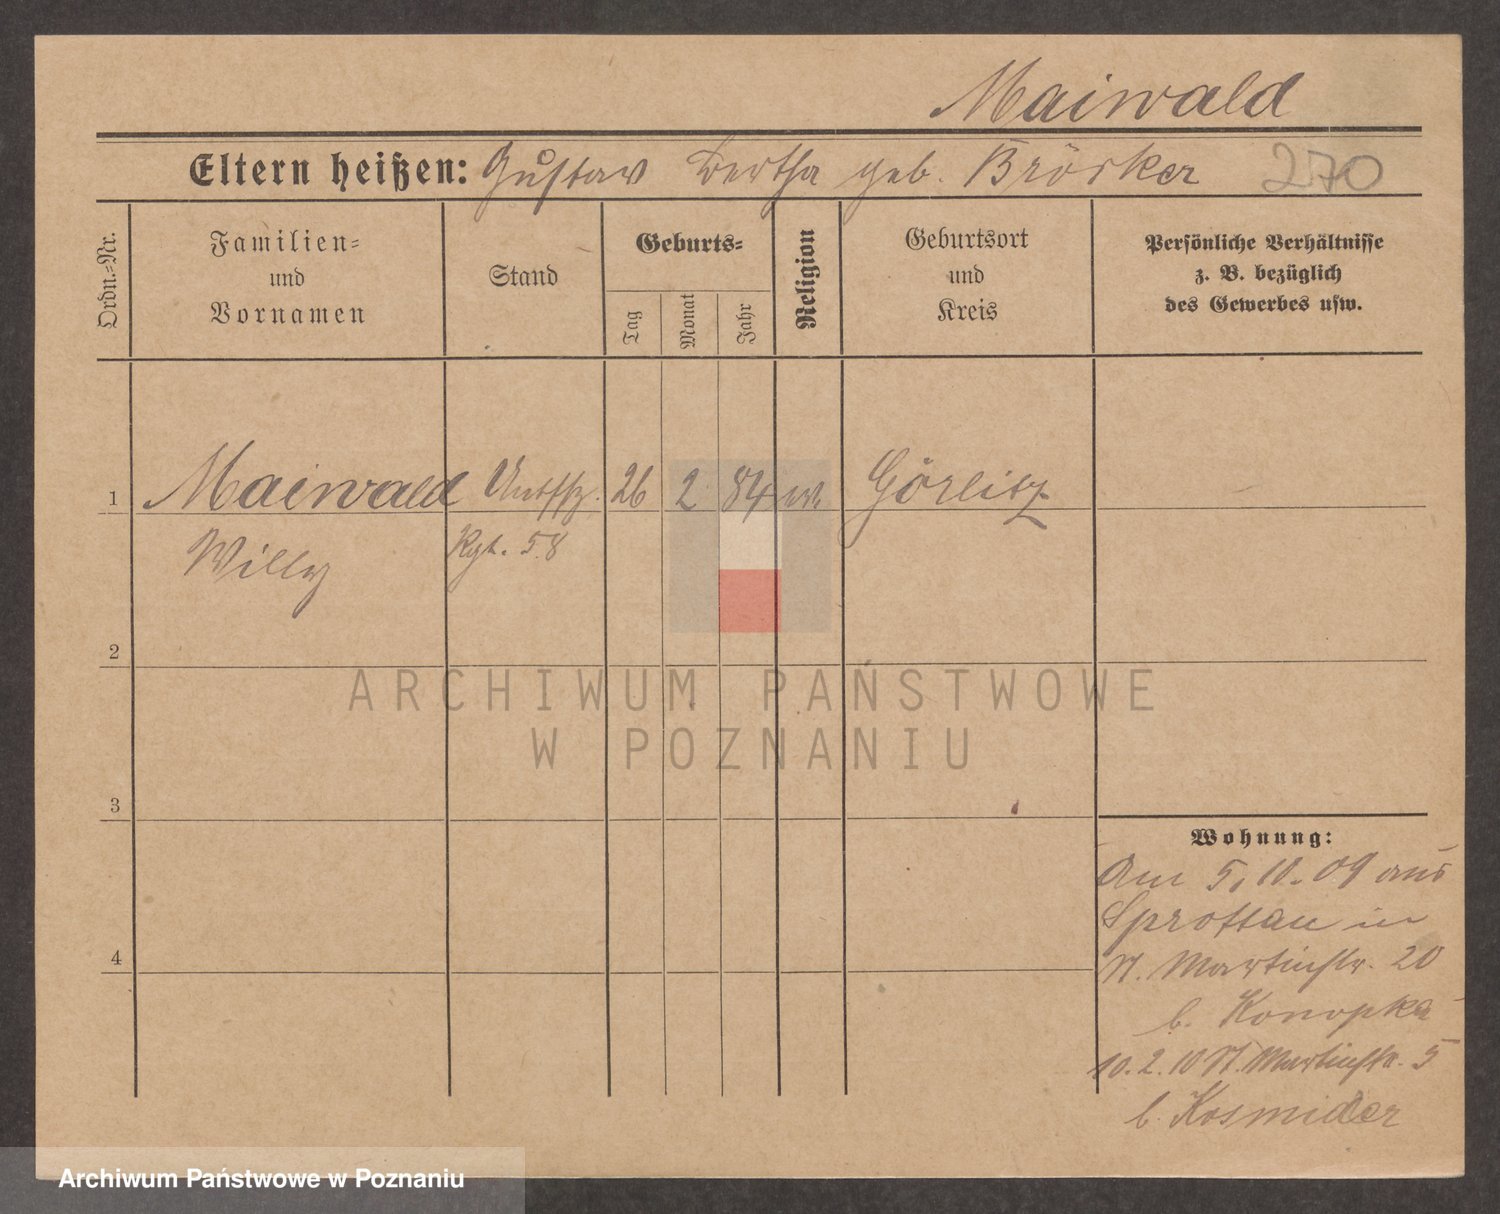 Maiwald
Eltern heißen: Gustav Bertha geb. Brösker 270
Ordn.-Nr.
Familien-
und
Vornamen
Stand
Geburts-
Tag
Monat
Jahr
Religion
Geburtsort
und
Kreis
Persönliche Verhältnisse
z. B. bezüglich
des Gewerbes usw.
1 Maiwald 26 2 84 Görlitz
Willy Rgt. 58
2
3
4
Wohnung:
Am 5.10.09 aus
Sprottau in
St. Martinstr. 20
b. Konopka
10.2.10 St. Martinstr. 5
b. Kosmider
ARCHIWUM PAŃSTWOWE
W POZNANIU
Archiwum Państwowe w Poznaniu